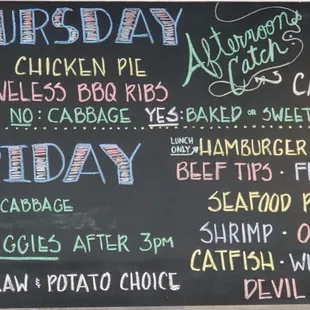 URSDAY
Afternoon
Catch
CHICKEN PIE
CA
ELESS BBQ RIBS
NO: CABBAGE YES: BAKED OR SWEET
IDAY
LUNCH ONLY HAMBURGER
BEEF TIPS · F
CABBAGE
SEAFOOD P
GGIES AFTER 3PM
SHRIMP · O
CATFISH · W
LAW & POTATO CHOICE
DEVIL